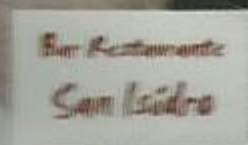 Bar Restaurante
San Isidro